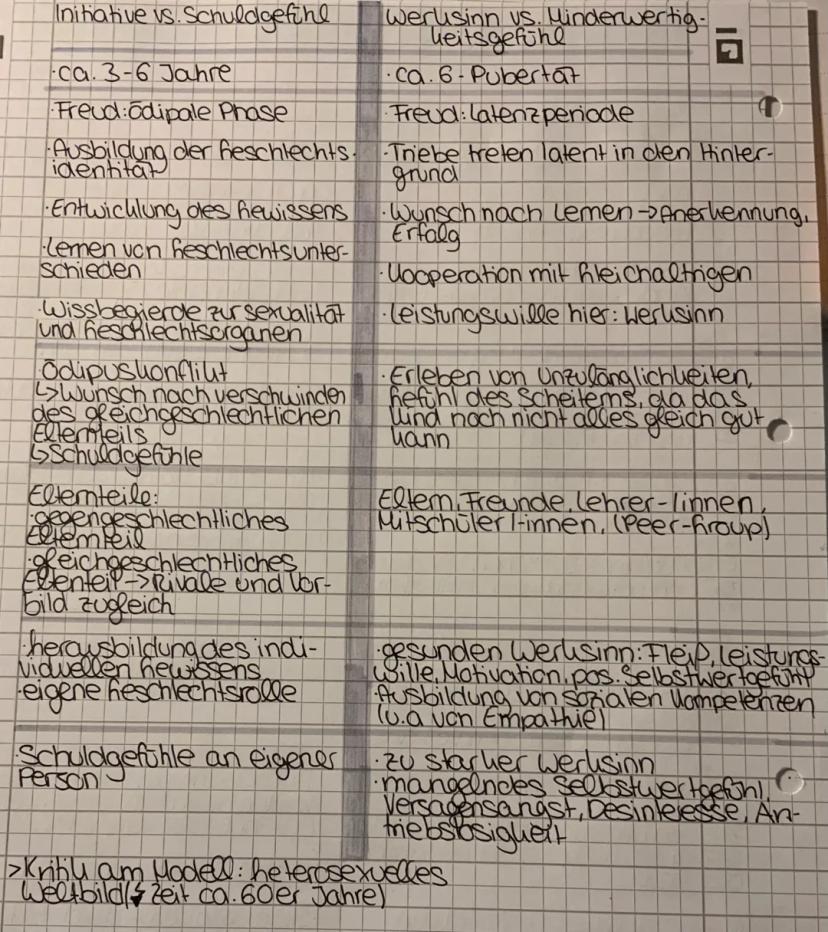 Initiative vs. Schuldgefühl
·ca. 3-6 Jahre
·Freud: ödipale Phase
·Ausbildung der Geschlechts-
identität
·Entwicklung des Gewissens
·Lernen von Geschlechtsunter-
schieden
·Wissbegierde zur Sexualität
und Geschlechtsorganen
Ödipuskonflikt
↳Wunsch nach verschwinden
des gleichgeschlechtlichen
Elternteils
↳Schuldgefühle
Elternteile:
·gegengeschlechtliches
Elternteil
·gleichgeschlechtliches
Elternteil->Rivale und Vor-
bild zugleich
·herausbildung des indi-
viduellen Gewissens
·eigene Geschlechtsrolle
·Schuldgefühle an eigener
Person
Werksinn vs. Minderwertig-
keitsgefühl
·ca. 6-Pubertät
·Freud: Latenzperiode
·Triebe treten latent in den Hinter-
grund
·Wunsch nach Lernen->Anerkennung,
Erfolg
·Kooperation mit Gleichaltrigen
·Leistungswille hier: Werksinn
·Erleben von Unzulänglichkeiten,
Gefühl des Scheiterns, da das
Kind noch nicht alles gleich gut
kann
Eltern, Freunde, Lehrer-/innen,
Mitschüler/-innen, (Peer-Group)
·gesunden Werksinn: Fleiß, Leistungs-
wille, Motivation, pos. Selbstwertgefühl
·Ausbildung von sozialen Kompetenzen
(u.a von Empathie)
·zu starker Werksinn
·mangelndes Selbstwertgefühl,
Versagensangst, Desinteresse, An-
triebslosigkeit
>Kritik am Modell: heterosexuelles
Weltbild (↯ Zeit ca. 60er Jahre)